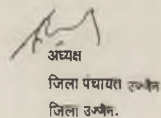 अध्यक्ष
जिला पंचायत उज्जैन
जिला उज्जैन.